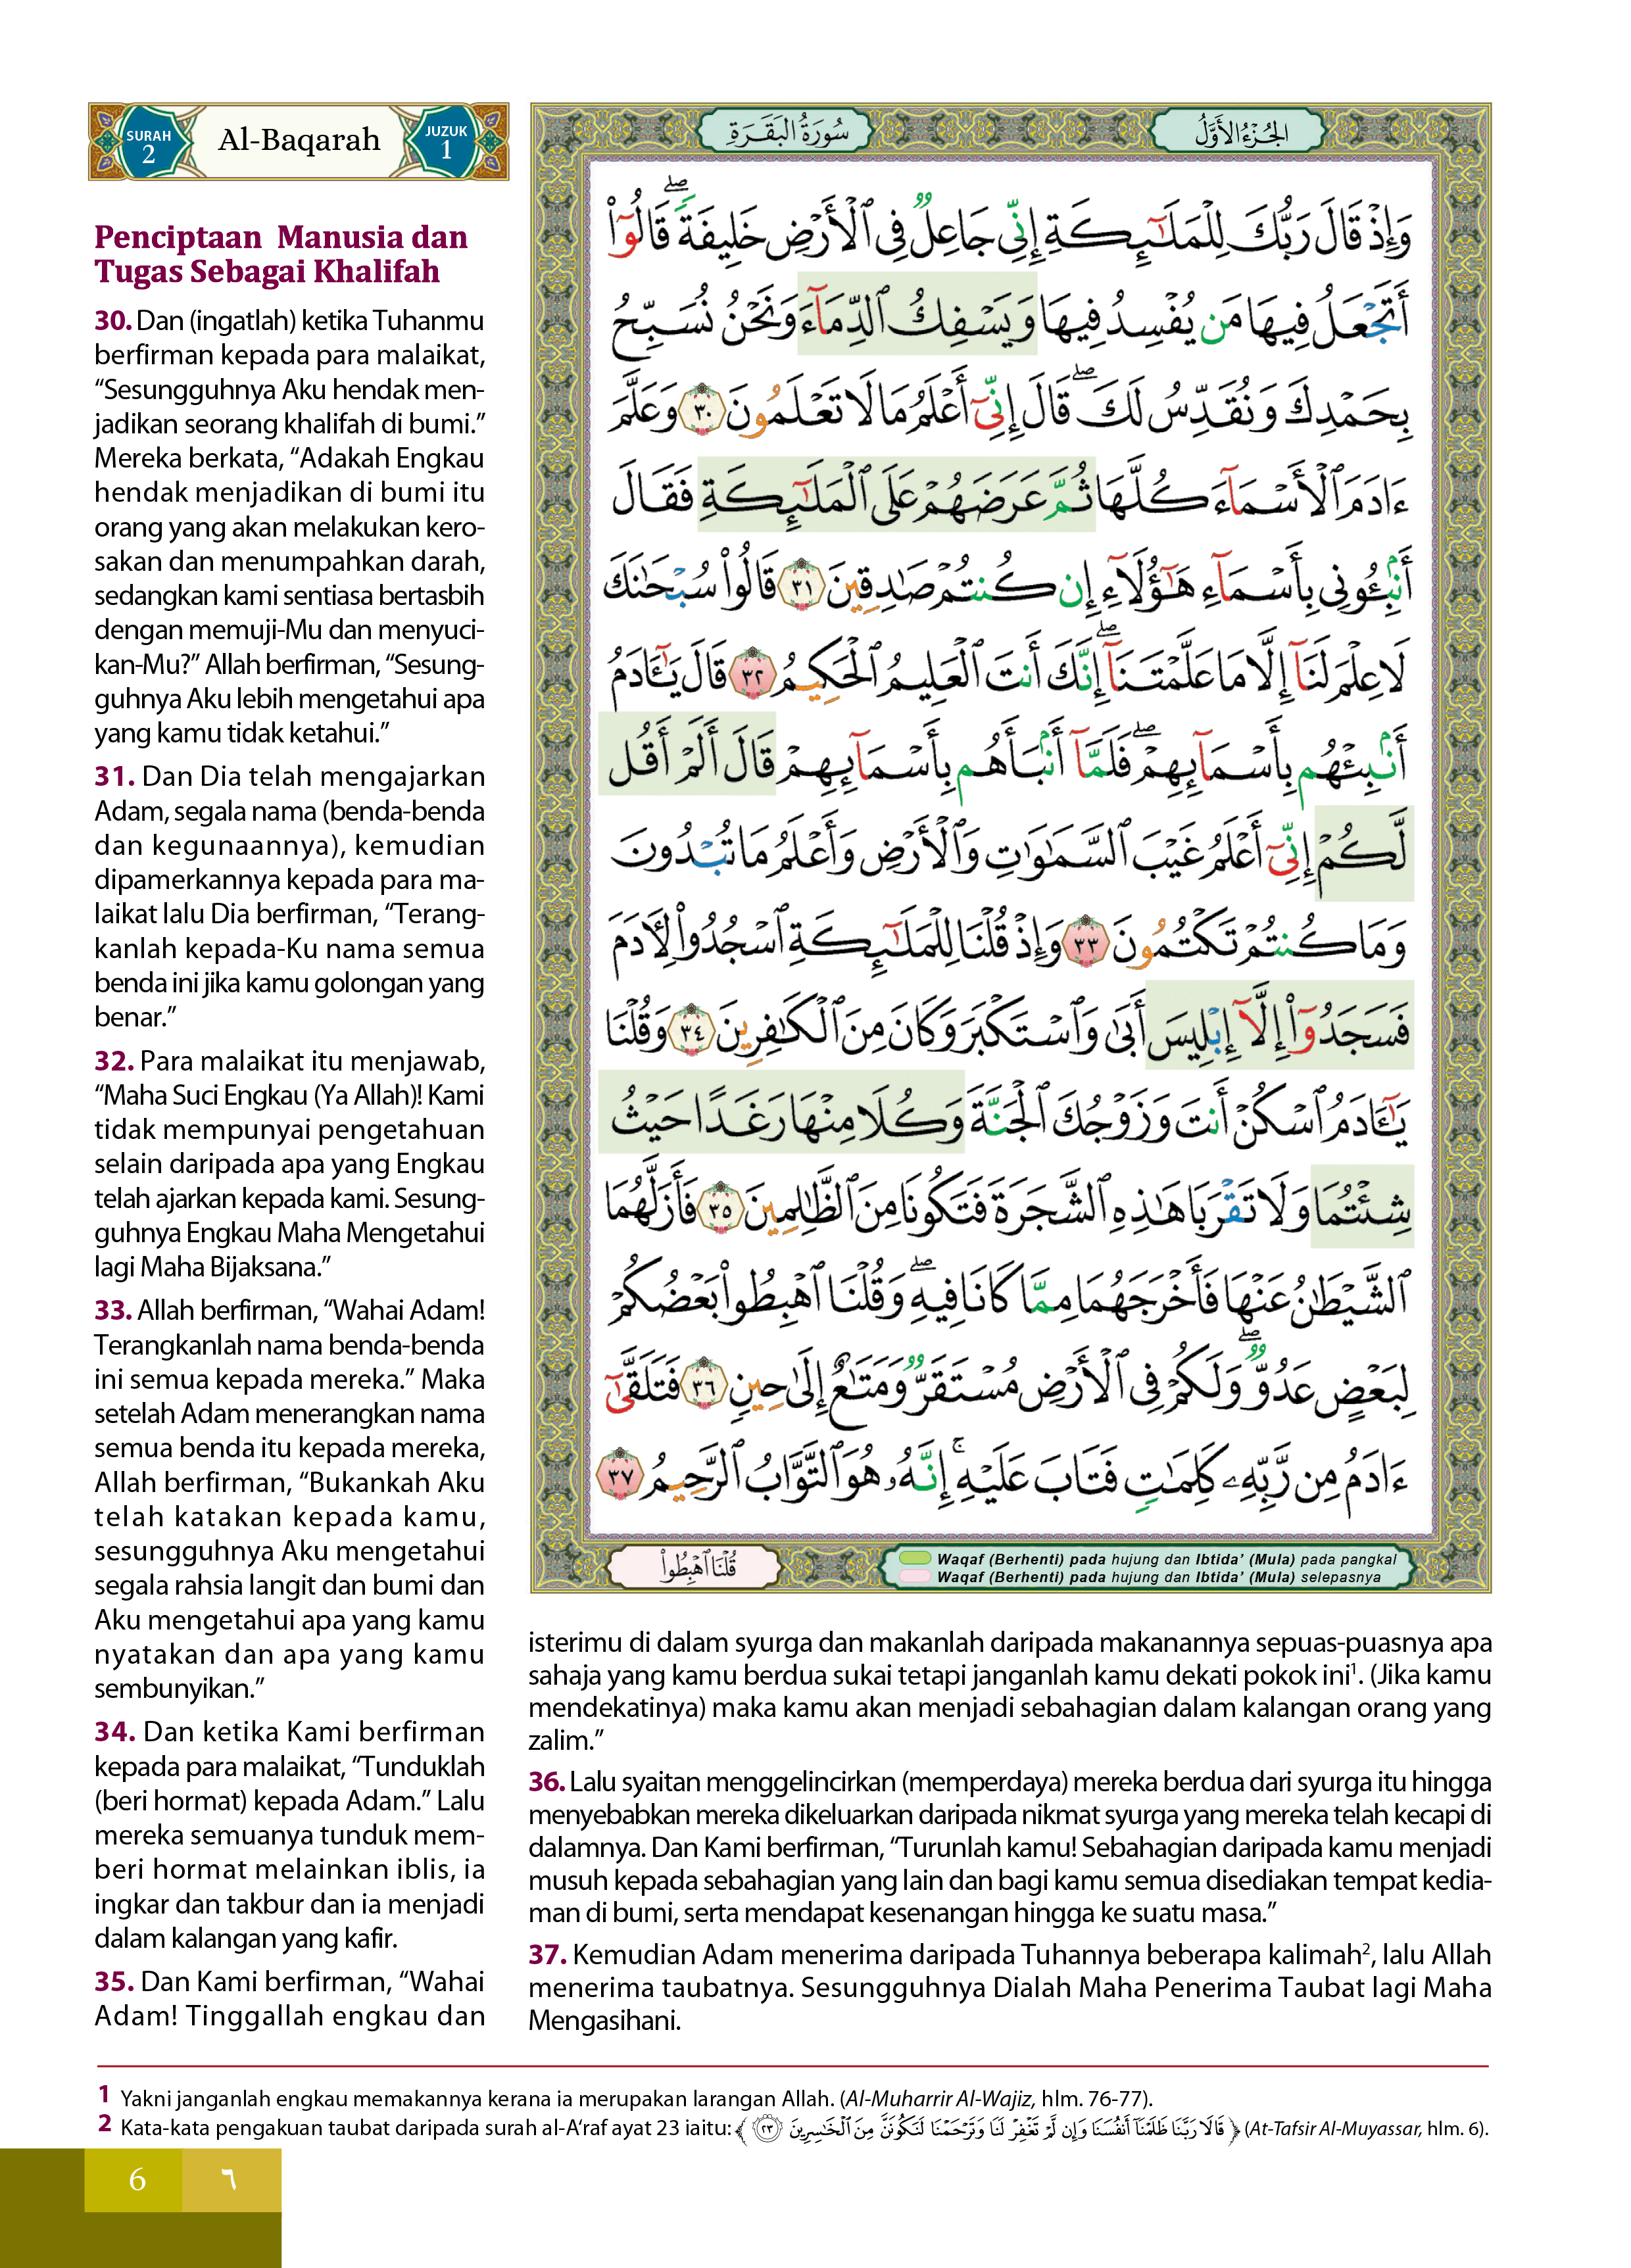 SURAH
2
Al-Baqarah
JUZUK
1
Penciptaan Manusia dan
Tugas Sebagai Khalifah
30. Dan (ingatlah) ketika Tuhanmu
berfirman kepada para malaikat,
“Sesungguhnya Aku hendak men-
jadikan seorang khalifah di bumi.”
Mereka berkata, “Adakah Engkau
hendak menjadikan di bumi itu
orang yang akan melakukan kero-
sakan dan menumpahkan darah,
sedangkan kami sentiasa bertasbih
dengan memuji-Mu dan menyuci-
kan-Mu?” Allah berfirman, “Sesung-
guhnya Aku lebih mengetahui apa
yang kamu tidak ketahui.”
31. Dan Dia telah mengajarkan
Adam, segala nama (benda-benda
dan kegunaannya), kemudian
dipamerkannya kepada para ma-
laikat lalu Dia berfirman, “Terang-
kanlah kepada-Ku nama semua
benda ini jika kamu golongan yang
benar.”
32. Para malaikat itu menjawab,
“Maha Suci Engkau (Ya Allah)! Kami
tidak mempunyai pengetahuan
selain daripada apa yang Engkau
telah ajarkan kepada kami. Sesung-
guhnya Engkau Maha Mengetahui
lagi Maha Bijaksana.”
33. Allah berfirman, “Wahai Adam!
Terangkanlah nama benda-benda
ini semua kepada mereka.” Maka
setelah Adam menerangkan nama
semua benda itu kepada mereka,
Allah berfirman, “Bukankah Aku
telah katakan kepada kamu,
sesungguhnya Aku mengetahui
segala rahsia langit dan bumi dan
Aku mengetahui apa yang kamu
nyatakan dan apa yang kamu
sembunyikan.”
34. Dan ketika Kami berfirman
kepada para malaikat, “Tunduklah
(beri hormat) kepada Adam.” Lalu
mereka semuanya tunduk mem-
beri hormat melainkan iblis, ia
ingkar dan takbur dan ia menjadi
dalam kalangan yang kafir.
35. Dan Kami berfirman, “Wahai
Adam! Tinggallah engkau dan
سُورَةُ البَقَرَةِ
الجُزْءُ الأَوَّلُ
وَإِذْ قَالَ رَبُّكَ لِلْمَلَٰٓئِكَةِ إِنِّي جَاعِلٌ فِي ٱلْأَرْضِ خَلِيفَةً ۖ قَالُوٓا۟
أَتَجْعَلُ فِيهَا مَن يُفْسِدُ فِيهَا وَيَسْفِكُ ٱلدِّمَآءَ وَنَحْنُ نُسَبِّحُ
بِحَمْدِكَ وَنُقَدِّسُ لَكَ ۖ قَالَ إِنِّيٓ أَعْلَمُ مَا لَا تَعْلَمُونَ ٣٠ وَعَلَّمَ
ءَادَمَ ٱلْأَسْمَآءَ كُلَّهَا ثُمَّ عَرَضَهُمْ عَلَى ٱلْمَلَٰٓئِكَةِ فَقَالَ
أَنۢبِـُٔونِي بِأَسْمَآءِ هَٰٓؤُلَآءِ إِن كُنتُمْ صَٰدِقِينَ ٣١ قَالُوا۟ سُبْحَٰنَكَ
لَا عِلْمَ لَنَآ إِلَّا مَا عَلَّمْتَنَآ ۖ إِنَّكَ أَنتَ ٱلْعَلِيمُ ٱلْحَكِيمُ ٣٢ قَالَ يَٰٓـَٔادَمُ
أَنۢبِئْهُم بِأَسْمَآئِهِمْ ۖ فَلَمَّآ أَنۢبَأَهُم بِأَسْمَآئِهِمْ قَالَ أَلَمْ أَقُل
لَّكُمْ إِنِّيٓ أَعْلَمُ غَيْبَ ٱلسَّمَٰوَٰتِ وَٱلْأَرْضِ وَأَعْلَمُ مَا تُبْدُونَ
وَمَا كُنتُمْ تَكْتُمُونَ ٣٣ وَإِذْ قُلْنَا لِلْمَلَٰٓئِكَةِ ٱسْجُدُوا۟ لِءَادَمَ
فَسَجَدُوٓا۟ إِلَّآ إِبْلِيسَ أَبَىٰ وَٱسْتَكْبَرَ وَكَانَ مِنَ ٱلْكَٰفِرِينَ ٣٤ وَقُلْنَا
يَٰٓـَٔادَمُ ٱسْكُنْ أَنتَ وَزَوْجُكَ ٱلْجَنَّةَ وَكُلَا مِنْهَا رَغَدًا حَيْثُ
شِئْتُمَا وَلَا تَقْرَبَا هَٰذِهِ ٱلشَّجَرَةَ فَتَكُونَا مِنَ ٱلظَّٰلِمِينَ ٣٥ فَأَزَلَّهُمَا
ٱلشَّيْطَٰنُ عَنْهَا فَأَخْرَجَهُمَا مِمَّا كَانَا فِيهِ ۖ وَقُلْنَا ٱهْبِطُوا۟ بَعْضُكُمْ
لِبَعْضٍ عَدُوٌّ ۖ وَلَكُمْ فِي ٱلْأَرْضِ مُسْتَقَرٌّ وَمَتَٰعٌ إِلَىٰ حِينٍ ٣٦ فَتَلَقَّىٰٓ
ءَادَمُ مِن رَّبِّهِۦ كَلِمَٰتٍ فَتَابَ عَلَيْهِ ۚ إِنَّهُۥ هُوَ ٱلتَّوَّابُ ٱلرَّحِيمُ ٣٧
قُلْنَا ٱهْبِطُوا۟
Waqaf (Berhenti) pada hujung dan Ibtida’ (Mula) pada pangkal
Waqaf (Berhenti) pada hujung dan Ibtida’ (Mula) selepasnya
isterimu di dalam syurga dan makanlah daripada makanannya sepuas-puasnya apa
sahaja yang kamu berdua sukai tetapi janganlah kamu dekati pokok ini1. (Jika kamu
mendekatinya) maka kamu akan menjadi sebahagian dalam kalangan orang yang
zalim.”
36. Lalu syaitan menggelincirkan (memperdaya) mereka berdua dari syurga itu hingga
menyebabkan mereka dikeluarkan daripada nikmat syurga yang mereka telah kecapi di
dalamnya. Dan Kami berfirman, “Turunlah kamu! Sebahagian daripada kamu menjadi
musuh kepada sebahagian yang lain dan bagi kamu semua disediakan tempat kedia-
man di bumi, serta mendapat kesenangan hingga ke suatu masa.”
37. Kemudian Adam menerima daripada Tuhannya beberapa kalimah2, lalu Allah
menerima taubatnya. Sesungguhnya Dialah Maha Penerima Taubat lagi Maha
Mengasihani.
1 Yakni janganlah engkau memakannya kerana ia merupakan larangan Allah. (Al-Muharrir Al-Wajiz, hlm. 76-77).
2 Kata-kata pengakuan taubat daripada surah al-A‘raf ayat 23 iaitu: ﴿ قَالَا رَبَّنَا ظَلَمْنَآ أَنفُسَنَا وَإِن لَّمْ تَغْفِرْ لَنَا وَتَرْحَمْنَا لَنَكُونَنَّ مِنَ ٱلْخَٰسِرِينَ ٢٣ ﴾ (At-Tafsir Al-Muyassar, hlm. 6).
6 ٦